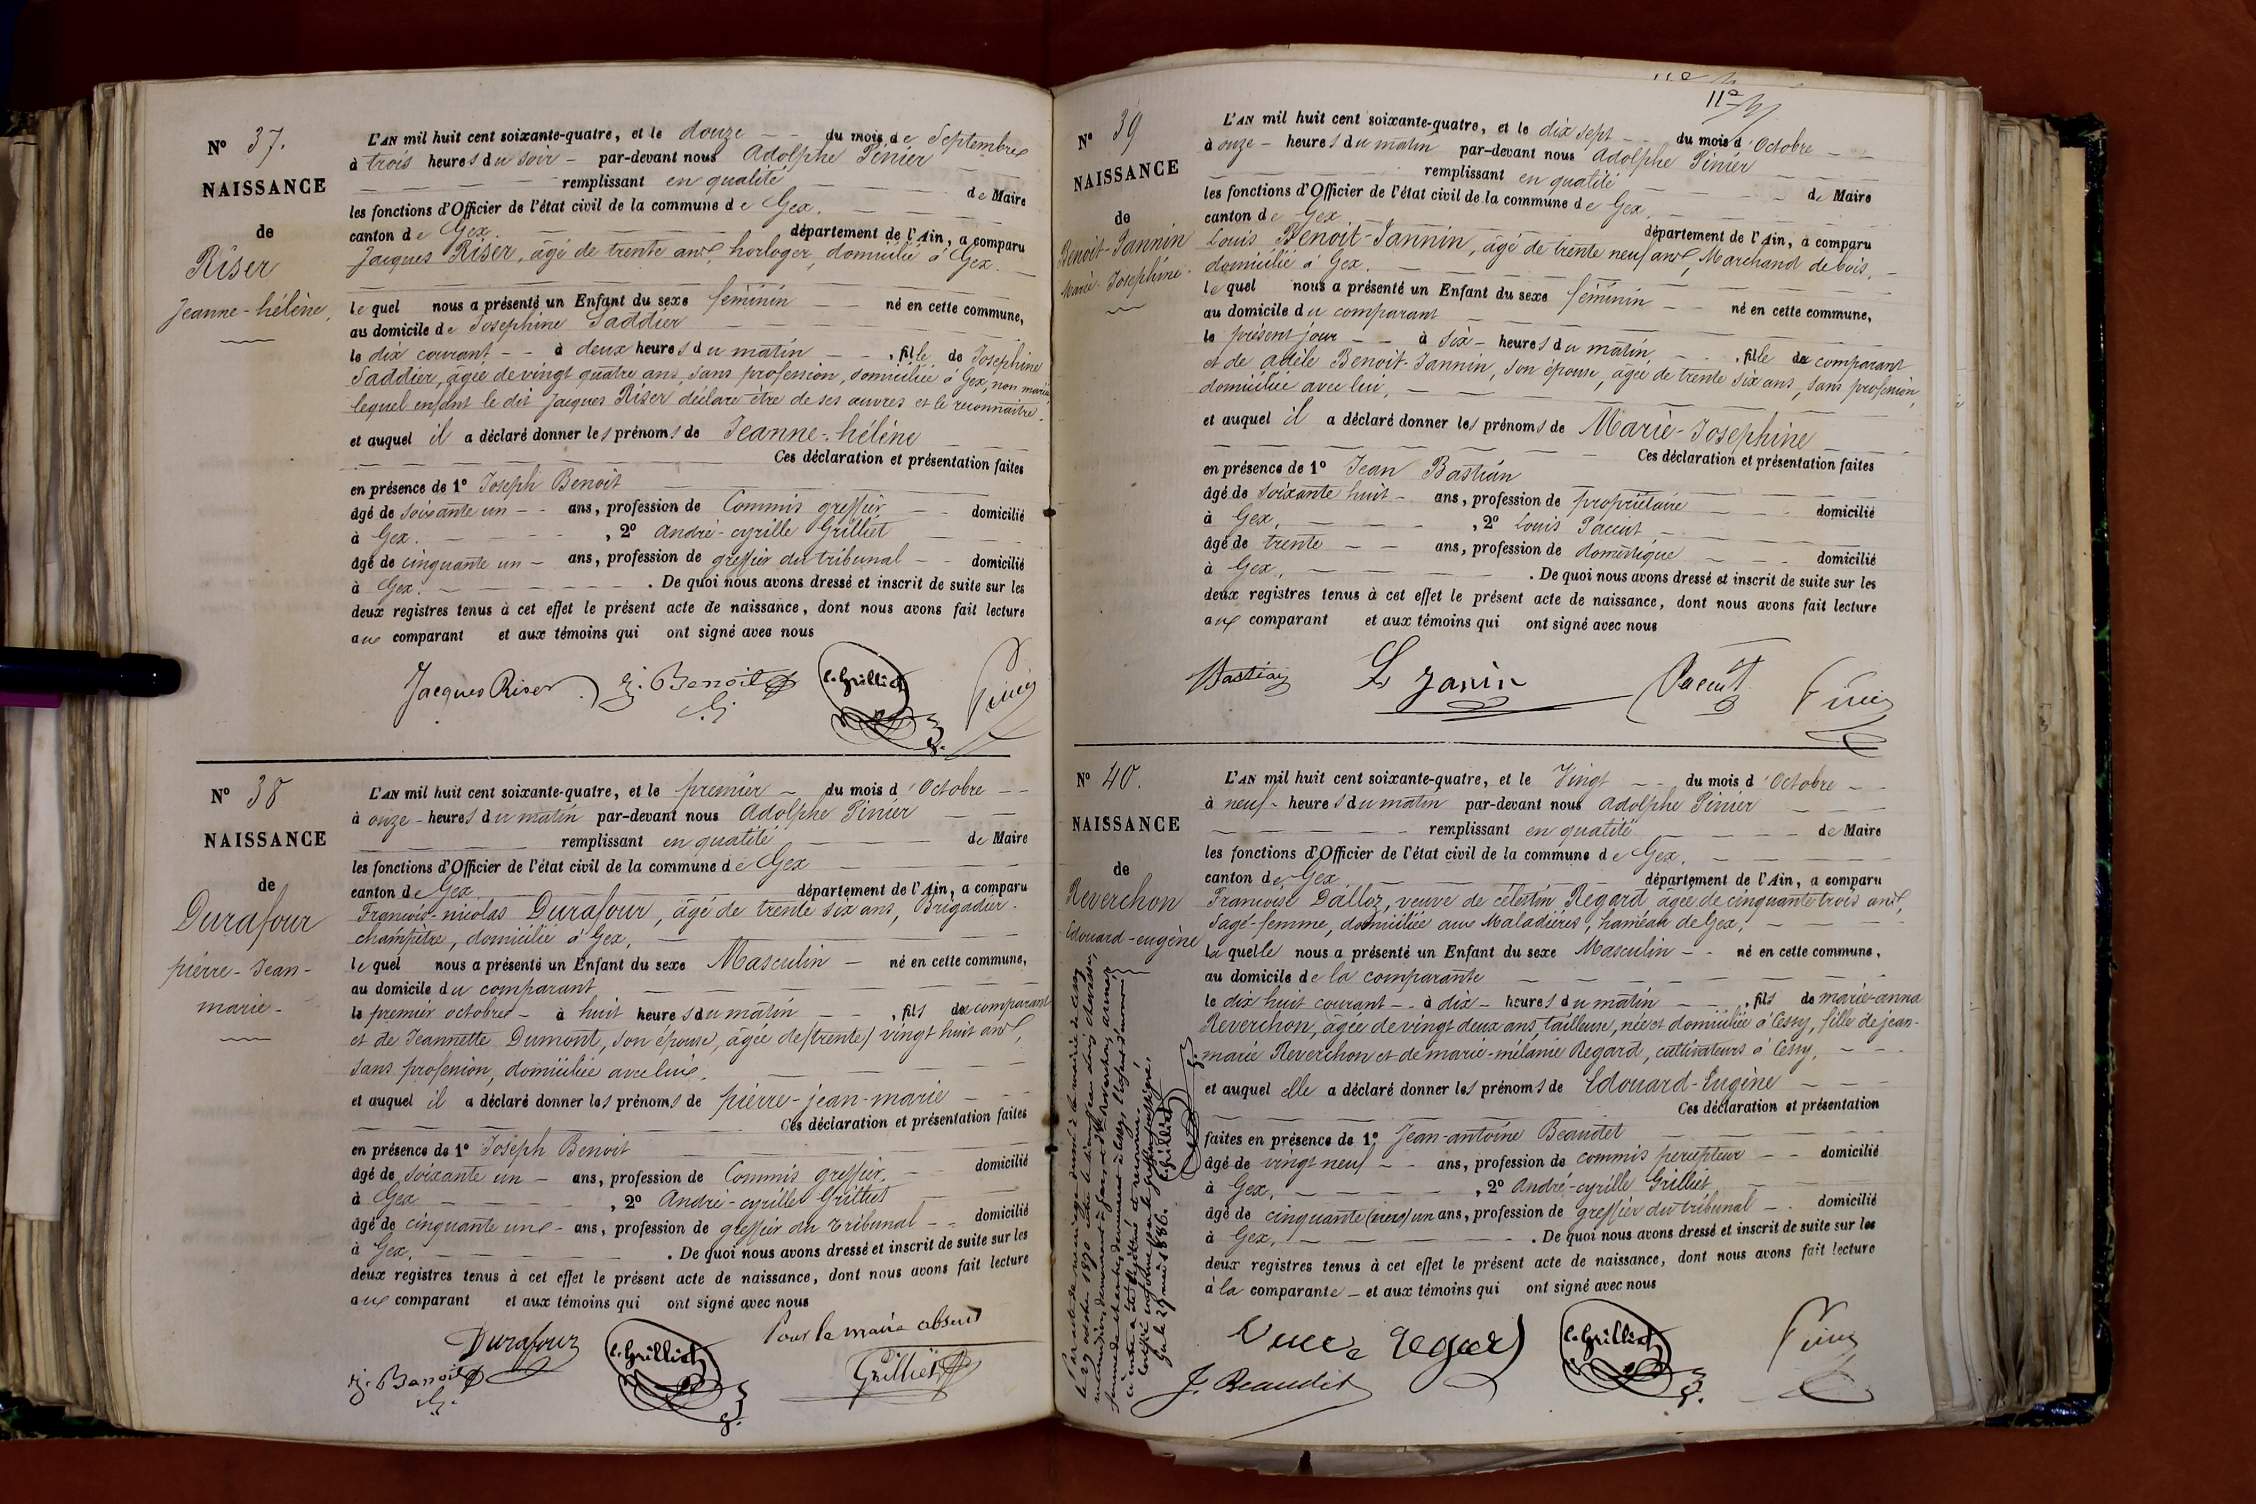 N° 37.
NAISSANCE
de
Riser
Jeanne-hélène,
L'AN mil huit cent soixante-quatre, et le douze du mois de Septembre
à trois heures du soir par-devant nous Adolphe Pinier
remplissant en qualité de Maire
les fonctions d'Officier de l'état civil de la commune de Gex.
canton de Gex. département de l'Ain, a comparu
Jacques Riser, âgé de trente ans, horloger, domicilié à Gex.
lequel nous a présenté un Enfant du sexe féminin né en cette commune,
au domicile de Josephine Saddier
le dix courant à deux heures du matin, fille de Josephine
Saddier, âgée de vingt quatre ans, sans profession, domiciliée à Gex, non mariée
lequel enfant le dit Jacques Riser déclare être de ses œuvres et le reconnaitre.
et auquel il a déclaré donner les prénoms de Jeanne-hélène
Ces déclaration et présentation faites
en présence de 1° Joseph Benoit
âgé de soixante un ans, profession de Commis greffier domicilié
à Gex. , 2° André-cyrille Grilliet
âgé de cinquante un ans, profession de greffier du tribunal domicilié
à Gex. . De quoi nous avons dressé et inscrit de suite sur les
deux registres tenus à cet effet le présent acte de naissance, dont nous avons fait lecture
aux comparant et aux témoins qui ont signé avec nous
Jacques Riser j. Benoit C. Grilliet Pinier
N° 38
NAISSANCE
de
Durafour
pierre-Jean-
marie-
L'AN mil huit cent soixante-quatre, et le premier du mois d'Octobre
à onze heures du matin par-devant nous Adolphe Pinier
remplissant en qualité de Maire
les fonctions d'Officier de l'état civil de la commune de Gex
canton de Gex département de l'Ain, a comparu
François-nicolas Durafour, âgé de trente six ans, Brigadier-
champêtre, domicilié à Gex,
lequel nous a présenté un Enfant du sexe Masculin né en cette commune,
au domicile du comparant
le premier octobre à huit heures du matin, fils du comparant
et de Jeannette Dumont, son épouse, âgée de (trente) vingt huit ans,
sans profession, domiciliée avec lui.
et auquel il a déclaré donner les prénoms de pierre-jean-marie
Ces déclaration et présentation faites
en présence de 1° Joseph Benoit
âgé de soixante un ans, profession de Commis greffier domicilié
à Gex , 2° André-cyrille Grilliet
âgé de cinquante un ans, profession de greffier du tribunal domicilié
à Gex. . De quoi nous avons dressé et inscrit de suite sur les
deux registres tenus à cet effet le présent acte de naissance, dont nous avons fait lecture
aux comparant et aux témoins qui ont signé avec nous
Durafour C. Grilliet Pour le maire absent
j. Benoit Grilliet
N° 39
NAISSANCE
de
Benoit-Jannin
Marie-Josephine.
L'AN mil huit cent soixante-quatre, et le dix sept du mois d'Octobre
à onze heures du matin par-devant nous Adolphe Pinier
remplissant en qualité de Maire
les fonctions d'Officier de l'état civil de la commune de Gex
canton de Gex département de l'Ain, a comparu
Louis Benoit-Jannin, âgé de trente neuf ans, Marchand de bois,
domicilié à Gex.
lequel nous a présenté un Enfant du sexe féminin né en cette commune,
au domicile du comparant
le présent jour à six heures du matin, fille du comparant
et de adèle Benoit-Jannin, son épouse, âgée de trente six ans, sans profession,
domiciliée avec lui,
et auquel il a déclaré donner les prénoms de Marie-Josephine
Ces déclaration et présentation faites
en présence de 1° Jean Bastian
âgé de soixante huit ans, profession de propriétaire domicilié
à Gex, , 2° Louis Paccut
âgé de trente ans, profession de domestique domicilié
à Gex, . De quoi nous avons dressé et inscrit de suite sur les
deux registres tenus à cet effet le présent acte de naissance, dont nous avons fait lecture
aux comparant et aux témoins qui ont signé avec nous
Bastian L Janin Paccut Pinier
N° 40.
NAISSANCE
de
Reverchon
Edouard-eugène
L'AN mil huit cent soixante-quatre, et le Vingt du mois d'Octobre
à neuf heures du matin par-devant nous Adolphe Pinier
remplissant en qualité de Maire
les fonctions d'Officier de l'état civil de la commune de Gex.
canton de Gex département de l'Ain, a comparu
Françoise Dalloz, veuve de célestin Regard âgée de cinquante trois ans,
Sage-femme, domiciliée aux Maladières, haméau de Gex,
laquelle nous a présenté un Enfant du sexe Masculin né en cette commune,
au domicile de la comparante
le dix huit courant à dix heures du matin, fils de marie-anna
Reverchon, âgée de vingt deux ans, tailleuse, née et domiciliée à Cessy, fille de jean-
marie Reverchon et de marie-mélanie Regard, cultivateurs à Cessy,
et auquel elle a déclaré donner les prénoms de Edouard-Eugène
Ces déclaration et présentation
faites en présence de 1° Jean-antoine Beaudet
âgé de vingt neuf ans, profession de commis percepteur domicilié
à Gex, , 2° André-cyrille Grilliet
âgé de cinquante un ans, profession de greffier du tribunal domicilié
à Gex, . De quoi nous avons dressé et inscrit de suite sur les
deux registres tenus à cet effet le présent acte de naissance, dont nous avons fait lecture
à la comparante et aux témoins qui ont signé avec nous
Veuve Regard C. Grilliet Pinier
J. Beaudet
Par acte de mariage dressé à la mairie de Cessy
C. Grilliet